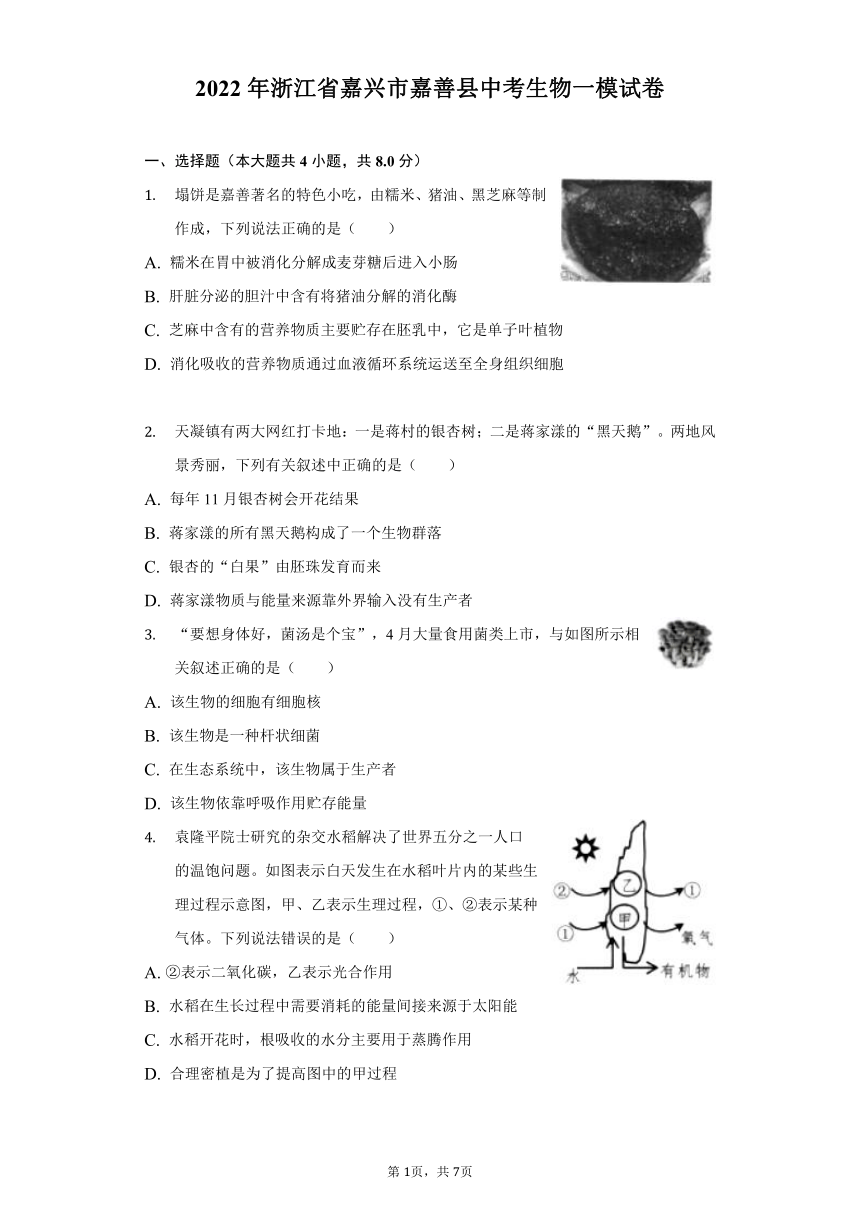 2022 年浙江省嘉兴市嘉善县中考生物一模试卷
一、选择题（本大题共 4 小题，共 8.0 分）
1. 塌饼是嘉善著名的特色小吃，由糯米、猪油、黑芝麻等制
作成，下列说法正确的是（　　）
A. 糯米在胃中被消化分解成麦芽糖后进入小肠
B. 肝脏分泌的胆汁中含有将猪油分解的消化酶
C. 芝麻中含有的营养物质主要贮存在胚乳中，它是单子叶植物
D. 消化吸收的营养物质通过血液循环系统运送至全身组织细胞
2. 天凝镇有两大网红打卡地：一是蒋村的银杏树；二是蒋家漾的“黑天鹅”。两地风
景秀丽，下列有关叙述中正确的是（　　）
A. 每年 11 月银杏树会开花结果
B. 蒋家漾的所有黑天鹅构成了一个生物群落
C. 银杏的“白果”由胚珠发育而来
D. 蒋家漾物质与能量来源靠外界输入没有生产者
3. “要想身体好，菌汤是个宝”，4 月大量食用菌类上市，与如图所示相
关叙述正确的是（　　）
A. 该生物的细胞有细胞核
B. 该生物是一种杆状细菌
C. 在生态系统中，该生物属于生产者
D. 该生物依靠呼吸作用贮存能量
4. 袁隆平院士研究的杂交水稻解决了世界五分之一人口
的温饱问题。如图表示白天发生在水稻叶片内的某些生
理过程示意图，甲、乙表示生理过程，①、②表示某种
气体。下列说法错误的是（　　）
② 乙 ①
① 甲 氧气
水 有机物
A. ②表示二氧化碳，乙表示光合作用
B. 水稻在生长过程中需要消耗的能量间接来源于太阳能
C. 水稻开花时，根吸收的水分主要用于蒸腾作用
D. 合理密植是为了提高图中的甲过程
第 1页，共 7页